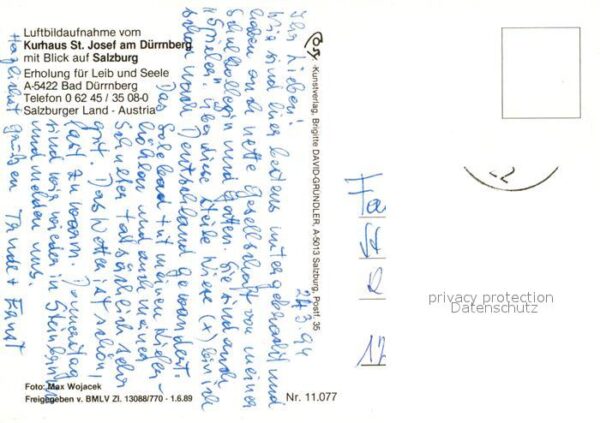 Luftbildaufnahme vom
Kurhaus St. Josef am Dürrnberg
mit Blick auf Salzburg
Erholung für Leib und Seele
A-5422 Bad Dürrnberg
Telefon 0 62 45 / 35 08-0
Salzburger Land - Austria
24.3.94
Ihr Lieben!
Wir sind hier bestens untergebracht und
haben auch nette Gesellschaft von meiner
Schulkollegin und Gatten. Sie sind auch
"Spieler". Über diese Weise Wiese (x) bin ich
schon nach Deutschland gewandert.
Das Solebad tut meinen Nieren-
und auch meiner
Schulter tatsächlich sehr
gut. Das Wetter ist schön,
fast zu warm. Donnerstag
sind wir wieder in
und melden uns.
Herzlichst grüßen Tante + Ernst
Cosy -Kunstverlag, Brigitte DAVID-GRÜNDLER, A-5013 Salzburg, Postf. 35
Fa
St
R
12
-2
privacy protection
Datenschutz
Foto: Max Wojacek
Freigegeben v. BMLV Zl. 13088/770 - 1.6.89
Nr. 11.077